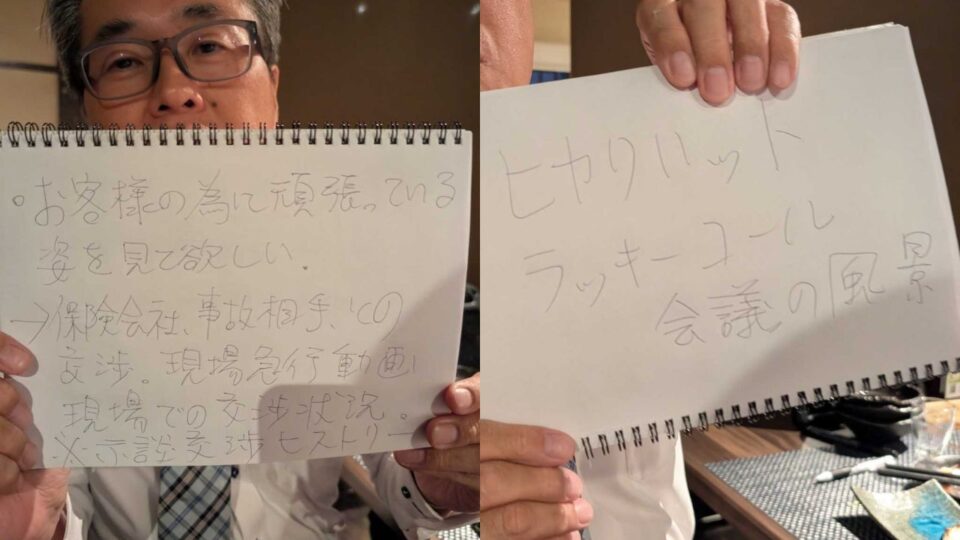 。お客様の為に頑張っている
姿を見て欲しい.
→保険会社、事故相手、との
交渉。現場急行動画
現場での交渉状況。
※示談交渉ヒストリー
ヒヤリハット
ラッキーコール
会議の風景